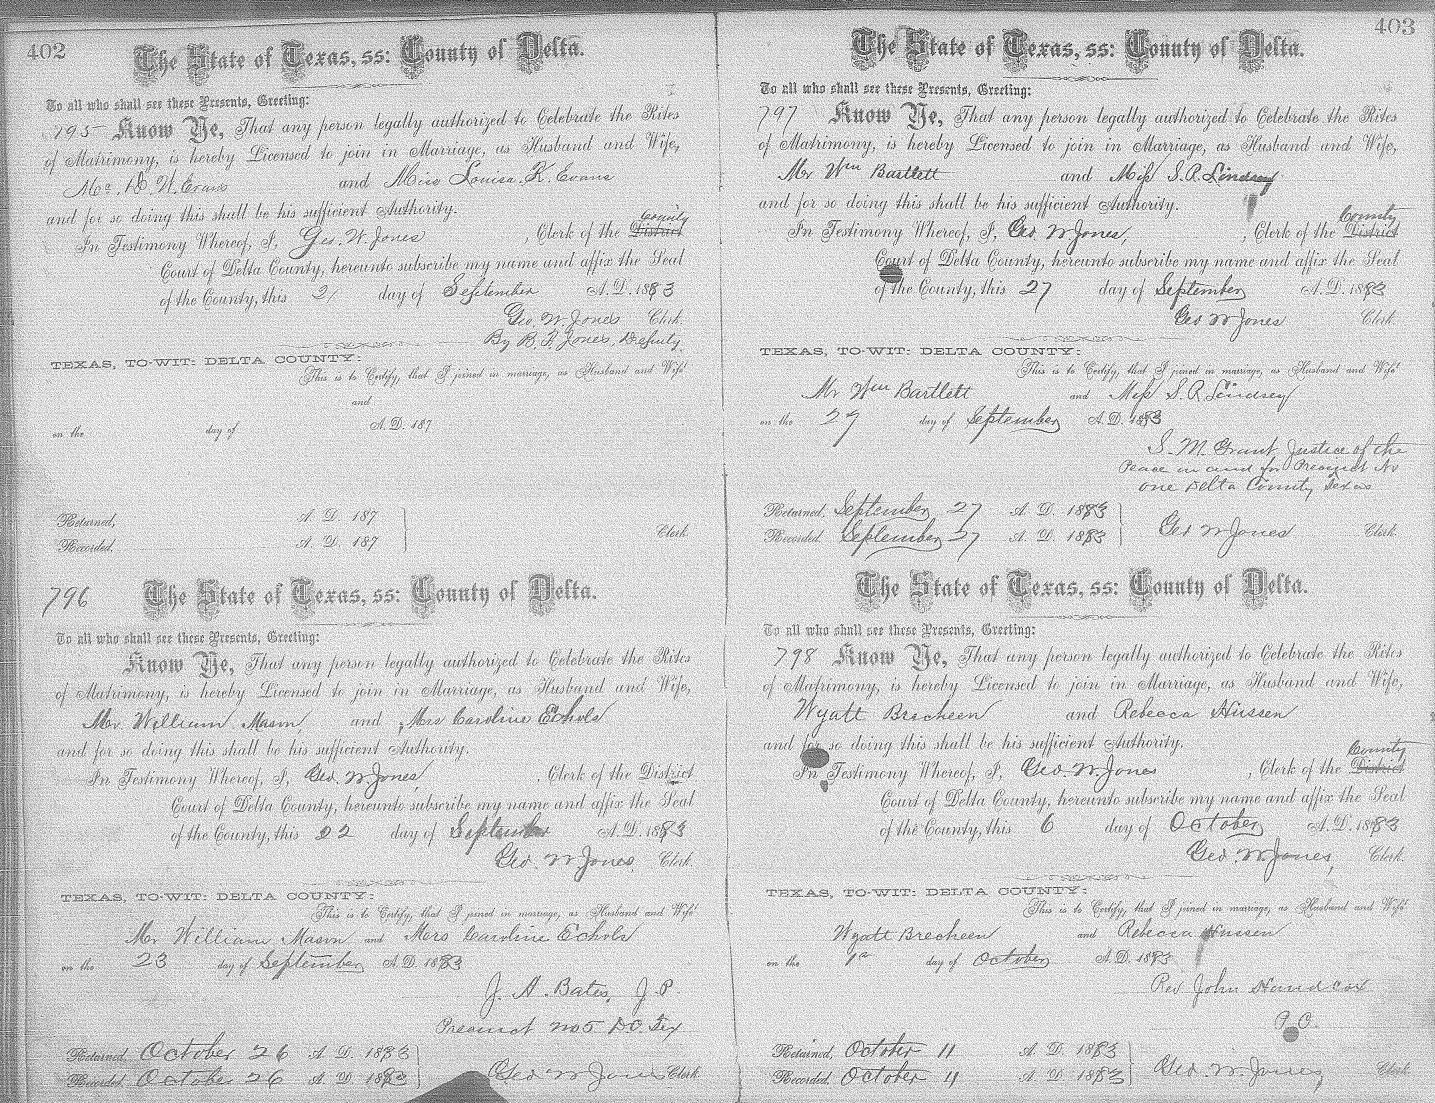 402
The State of Texas, ss: County of Delta.
To all who shall see these Presents, Greeting:
795 Know Ye, That any person legally authorized to Celebrate the Rites
of Matrimony, is hereby Licensed to join in Marriage, as Husband and Wife,
Mr. N. Evans and Miss Louisa. K. Evans
and for so doing this shall be his sufficient Authority.
County
In Testimony Whereof, I, Geo. W. Jones , Clerk of the District
Court of Delta County, hereunto subscribe my name and affix the Seal
of the County, this 21 day of September A. D. 1883
Geo. W Jones Clerk.
By B. F. Jones, Deputy.
TEXAS, TO-WIT: DELTA COUNTY:
This is to Certify, that I joined in marriage, as Husband and Wife
and
on the day of A. D. 187
Returned, A. D. 187
Recorded. A. D. 187 Clerk.
796 The State of Texas, ss: County of Delta.
To all who shall see these Presents, Greeting:
Know Ye, That any person legally authorized to Celebrate the Rites
of Matrimony, is hereby Licensed to join in Marriage, as Husband and Wife,
Mr William Mason, and Mrs Caroline Echols
and for so doing this shall be his sufficient Authority.
In Testimony Whereof, I, Geo. W Jones, , Clerk of the District
Court of Delta County, hereunto subscribe my name and affix the Seal
of the County, this 22 day of September A. D. 1883
Geo. W Jones Clerk.
TEXAS, TO-WIT: DELTA COUNTY:
This is to Certify, that I joined in marriage, as Husband and Wife
Mr William Mason and Mrs Caroline Echols
on the 23 day of September A. D. 1883
J. A. Bates, J. P.
Precinct No 5 D. C. Tex
Returned, October 26 A. D. 1883
Recorded. October 26 A. D. 1883 Geo W Jones Clerk
403
The State of Texas, ss: County of Delta.
To all who shall see these Presents, Greeting:
797 Know Ye, That any person legally authorized to Celebrate the Rites
of Matrimony, is hereby Licensed to join in Marriage, as Husband and Wife,
Mr Wm Bartlett and Miss S. R. Lindsey
and for so doing this shall be his sufficient Authority.
County
In Testimony Whereof, I, Geo. W Jones, , Clerk of the District
Court of Delta County, hereunto subscribe my name and affix the Seal
of the County, this 27 day of September A. D. 1883
Geo W Jones Clerk.
TEXAS, TO-WIT: DELTA COUNTY:
This is to Certify, that I joined in marriage, as Husband and Wife
Mr Wm Bartlett and Miss S. R. Lindsey
on the 27 day of September A. D. 1883
S. M. Grant Justice of the
Peace in and for Precinct No
one Delta County Texas
Returned, September 27 A. D. 1883
Recorded. September 27 A. D. 1883 Geo W Jones Clerk.
The State of Texas, ss: County of Delta.
To all who shall see these Presents, Greeting:
798 Know Ye, That any person legally authorized to Celebrate the Rites
of Matrimony, is hereby Licensed to join in Marriage, as Husband and Wife,
Wyatt Brecheen and Rebecca Hussen
and for so doing this shall be his sufficient Authority.
County
In Testimony Whereof, I, Geo. W. Jones , Clerk of the District
Court of Delta County, hereunto subscribe my name and affix the Seal
of the County, this 6 day of October A. D. 1883
Geo. W Jones, Clerk.
TEXAS, TO-WIT: DELTA COUNTY:
This is to Certify, that I joined in marriage, as Husband and Wife
Wyatt Brecheen and Rebecca Hussen
on the day of October A. D. 1883
Rev John Handcox
Returned, October 11 A. D. 1883
Recorded. October 11 A. D. 1883 Geo. W. Jones, Clerk.